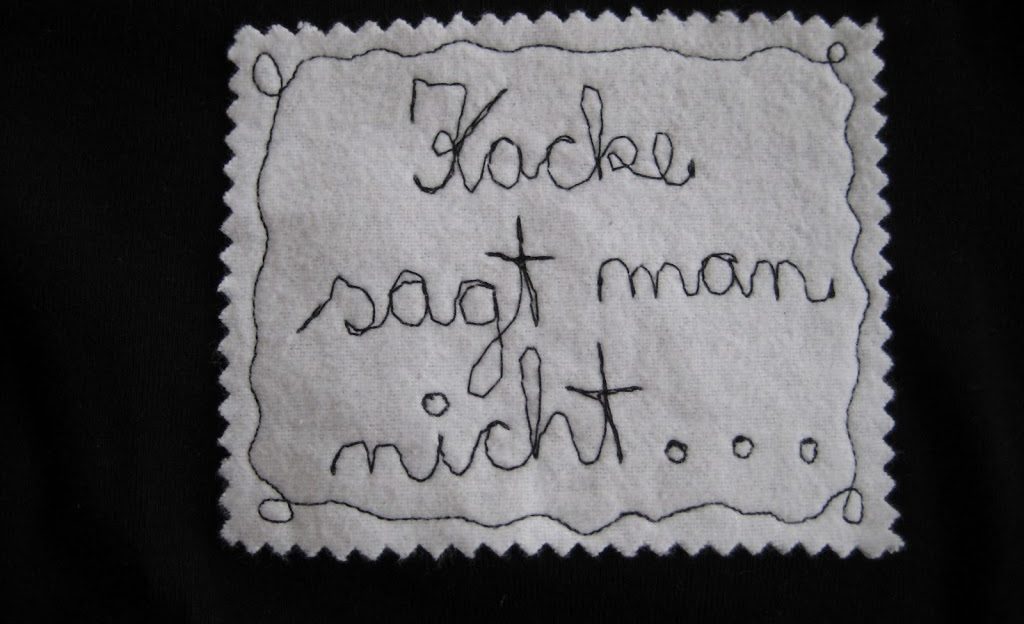 Kacke
sagt man
nicht...